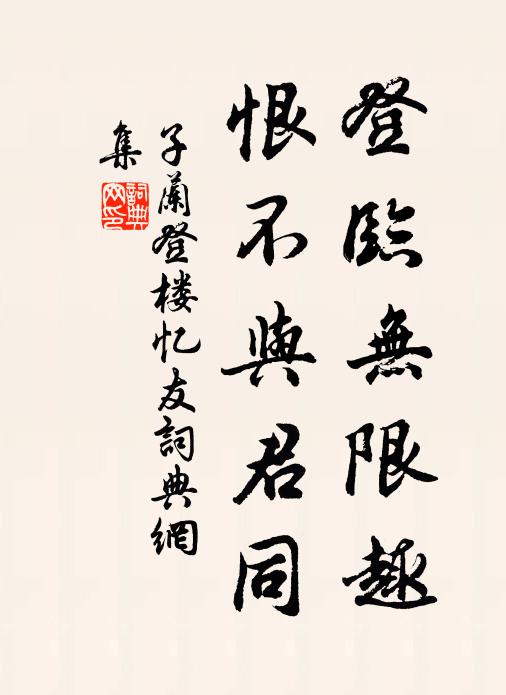 登臨無限趣
恨不與君同
子蘭登楼忆友詞典網
集
詞典
网印